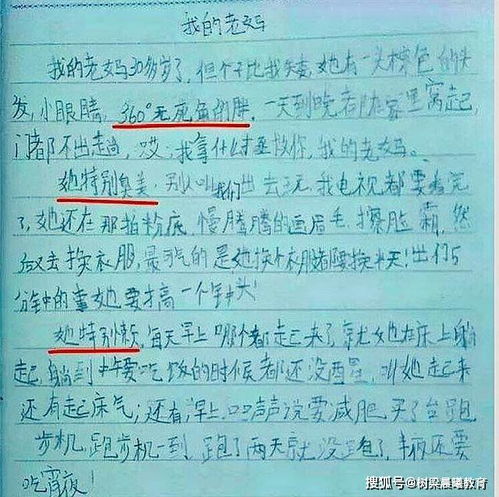 我的老妈
我的老妈30多岁了，但个子比我矮，她有一头棕色的头
发，小眼睛，360°无死角的胖，一天到晚都在家里窝起，
门都不出走尚，哎，我拿什么拯救你，我的老妈。
她特别臭美，别人叫我们出去玩，我电视都要看完
了，她还在那拍粉底，慢腾腾的画眉毛，擦脸霜，然
后又去换衣服，最气的是她换个衣服都要挠半天！出们5
分钟的事她要才高一个钟头！
她特别懒，每天早上哪个都走已来了，就她在床上躺
起，躺到中午要吃饭的时候都还没西星，叫她走己来
还有起床气，还有早上口口声声说要减肥，买了台跑
步机，跑步机一到，跑了两天就没跑了，半夜还要
吃宵夜！
搜狐号@树梁晨曦教育